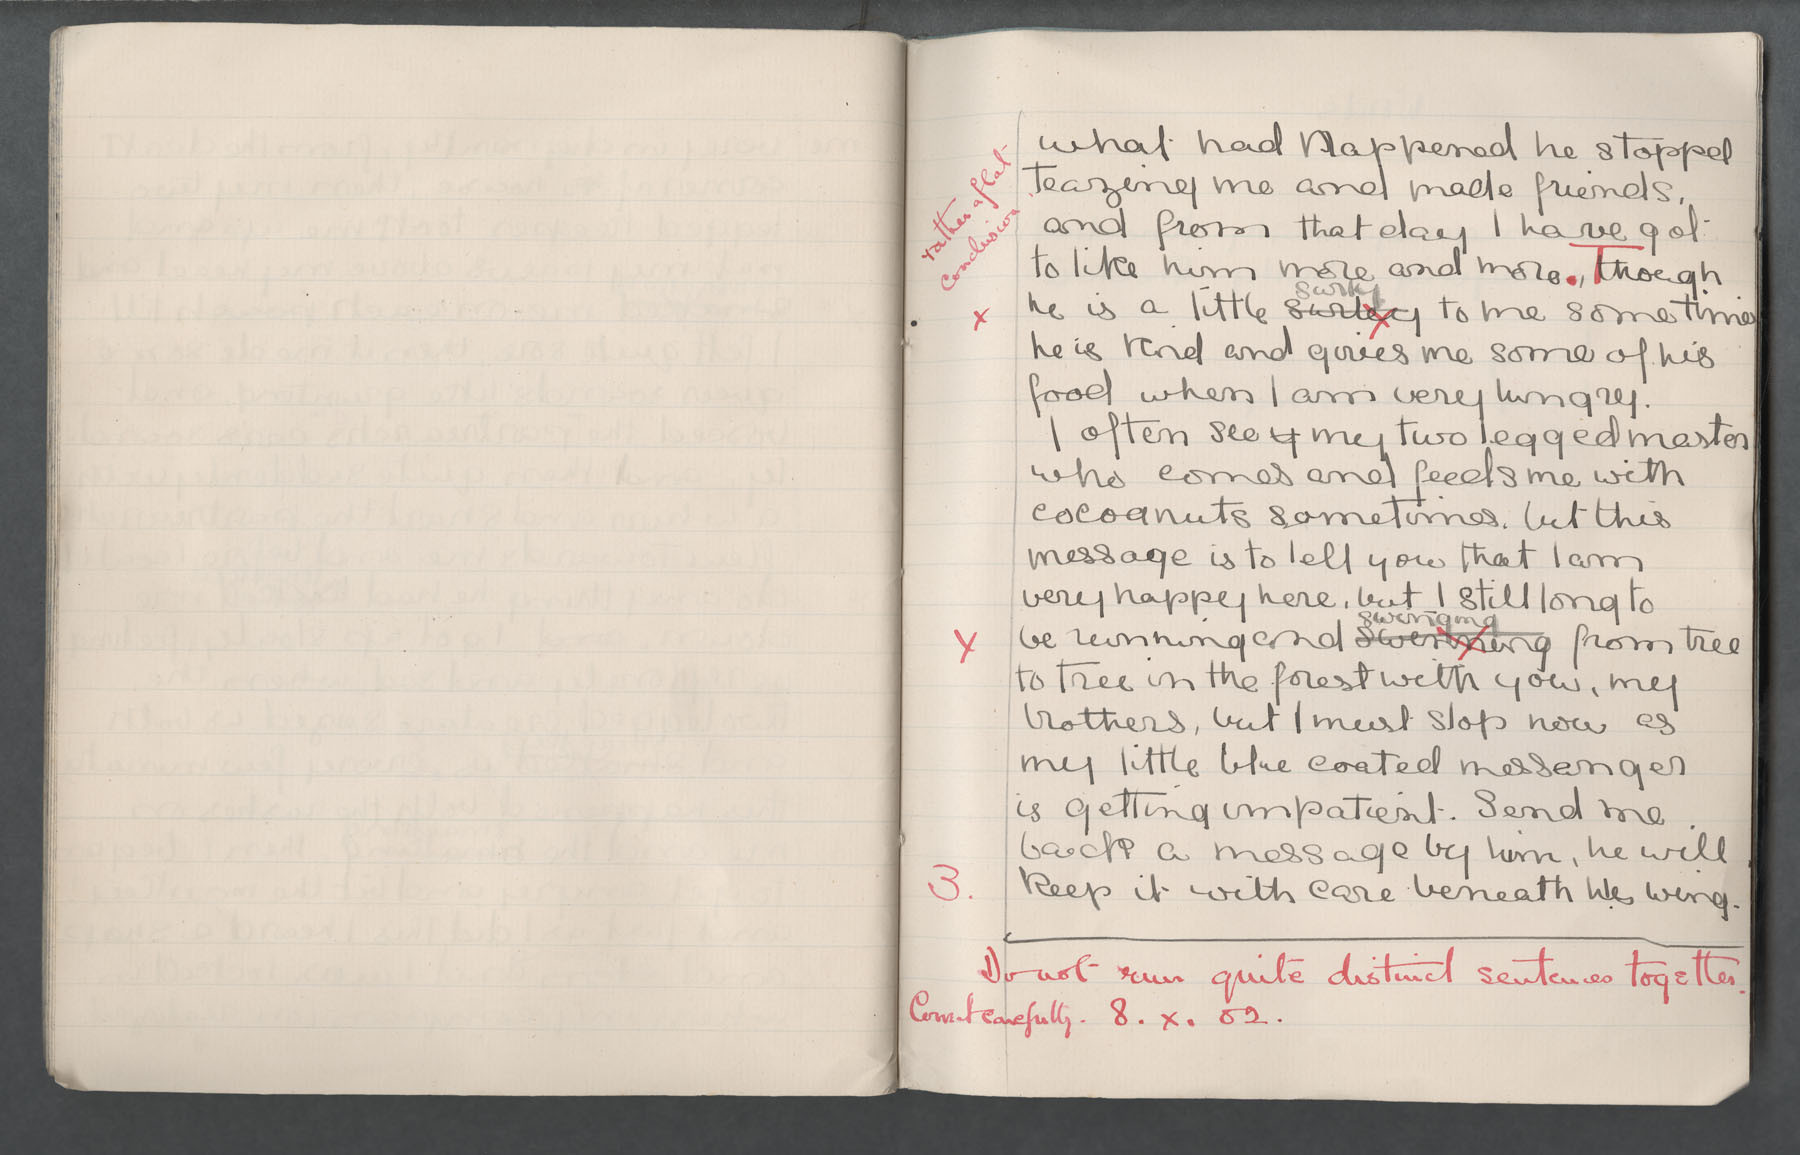 what had happened he stopped
teazeing me and made friends,
and from that day I have got
to like him more and more., Though
surly
he is a little surley to me sometimes
he is kind and gives me some of his
food when I am very hungry.
I often see my two legged master
who comes and feeds me with
cocoanuts sometimes. but this
message is to tell you that I am
very happy here, but I still long to
swinging
be running and swinning from tree
to tree in the forest with you, my
brothers, but I must stop now as
my little blue coated messenger
is getting impatient. Send me
back a message by him, he will
keep it with care beneath his wing.
rather a flat
conclusion
x
x
3.
Do not run quite distinct sentences together.
Correct carefully. 8. x. 02.